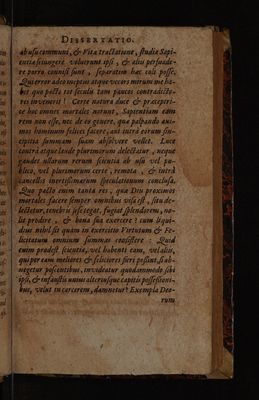 DISSERTATIO.
ab usu communi, & Vitæ tractatione, studia Sapi-
entiæ seiungere voluerunt ipsi, & aliis persuade-
re porro connisi sunt, separatim hæc coli posse.
Qui error adeo ineptus atque vecors mirum me ha-
bet quo pacto tot seculis tam paucos contradicto-
res invenerit! Certe natura duce & præceptri-
ce hoc omnes mortales norunt, Sapientiam eam
rem non esse, nec de eo genere, quæ palpando ani-
mos hominum felices facere, aut intra eorum sin-
cipitia summam suam absolvere velit. Luce
contra atque laude plurimorum delectatur, neque
gaudet ullarum rerum scientia ab usu vel pu-
blico, vel plurimorum certe, remota, & intra
cancellos inertissimarum speculationum conclusa.
Quo pacto enim tanta res, quæ Diu proximos
mortales facere semper omnibus visa est, situ de-
lectetur, tenebris sese tegat, fugiat splendorem, no-
lit prodere, & bona sua exercere? cum liqui-
dius nihil sit quam in exercitio Virtutum & Fe-
licitatum omnium summas consistere: Quid
enim prodest sitientes, vel habenti eam, vel aliis,
qui per eam meliores & feliciores fieri possint, si ab-
negetur poscentibus, invideatur quodammodo sibi
ipsi, & infaustis unius alteriusque capitis possessioni-
bus, velut in carcerem, damnetur? Exempla Deo-
rum